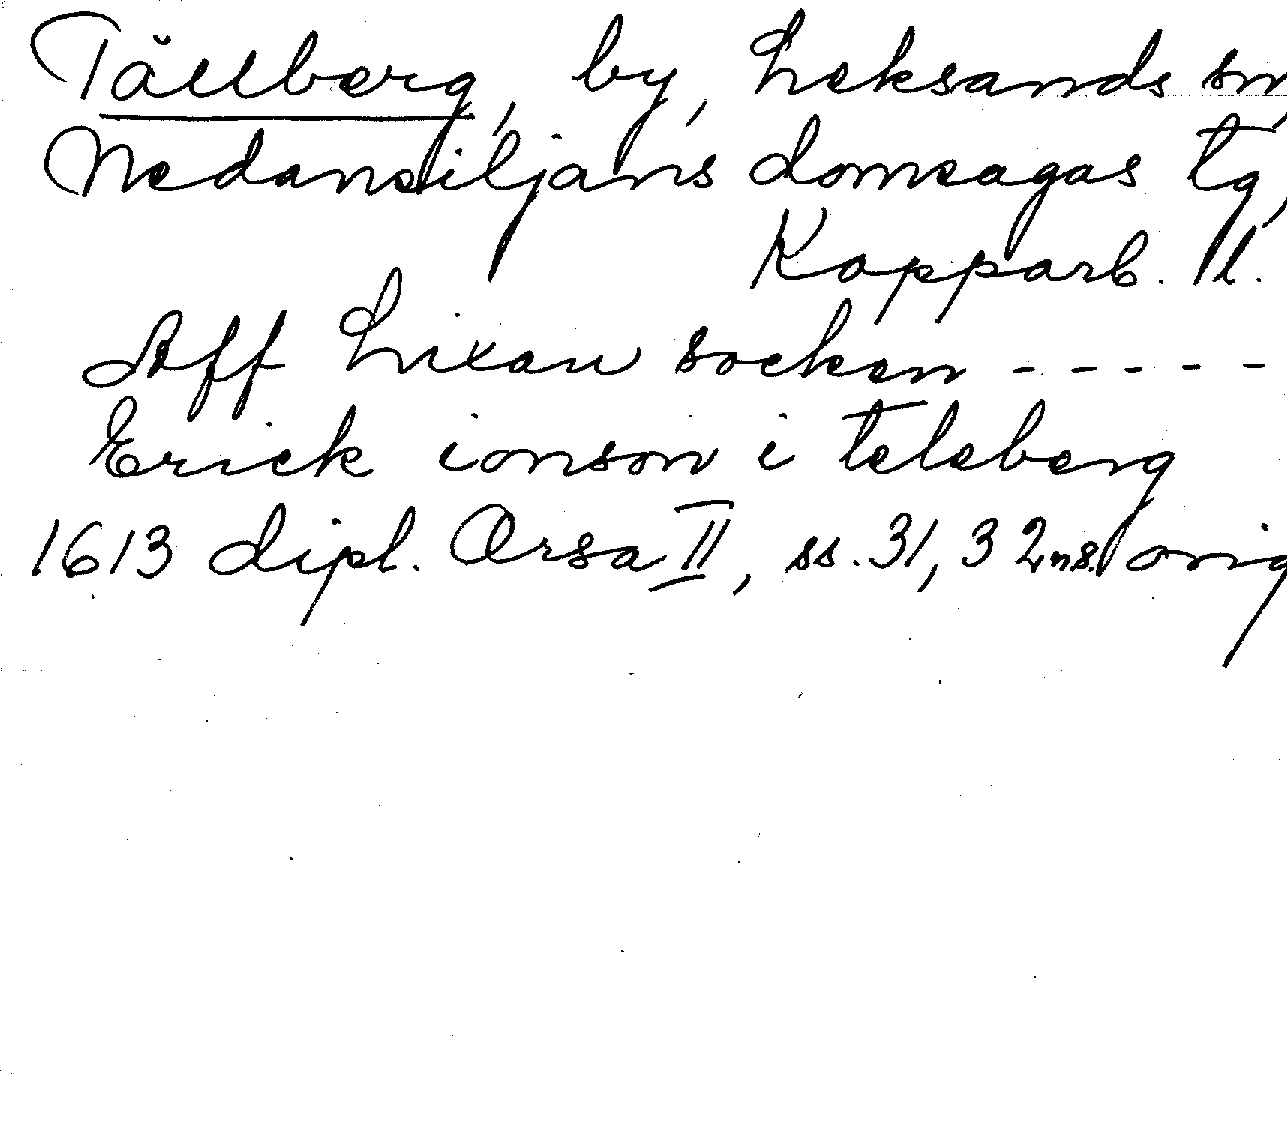 Tällberg, by, Leksands sn,
Nedansiljans domsagas tg,
Kopparb. l.
Aff Lixau socken - - - - -
Erick ionson i teleberg
1613 dipl. Orsa II, ss. 31, 32 ns. orig